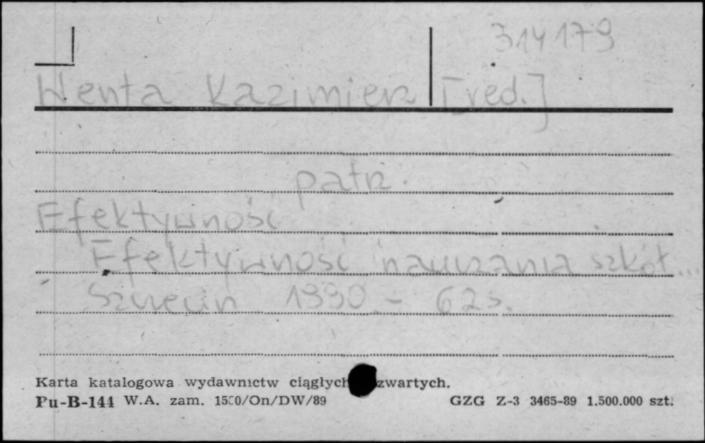 314179
Wenta Kazimierz [red.]
patrz.
Efektywność
Efektywność nauczania szkół...
Szczecin 1990 - 62 s.
Karta katalogowa wydawnictw ciągłych zwartych.
Pu-B-144 W.A. zam. 1500/On/DW/89 GZG Z-3 3465-89 1.500.000 szt.